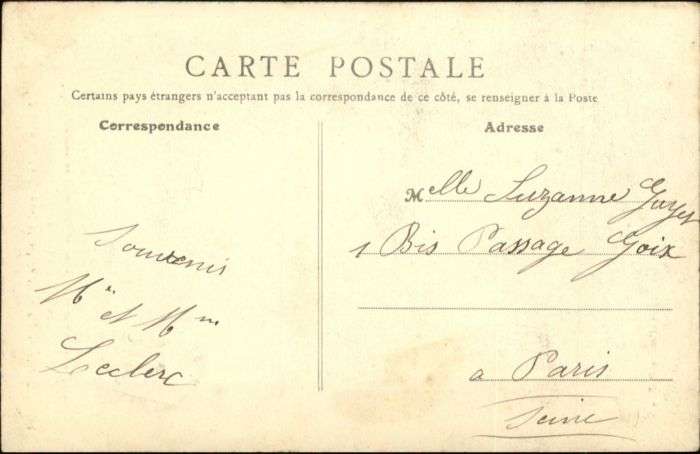 CARTE POSTALE
Certains pays étrangers n'acceptent pas la correspondance de ce côté, se renseigner à la Poste
Correspondance
Souvenirs
Mr et Mme
Leclerc
Adresse
Melle Suzanne Guyet
1 Bis Passage Goix
a Paris
Seine